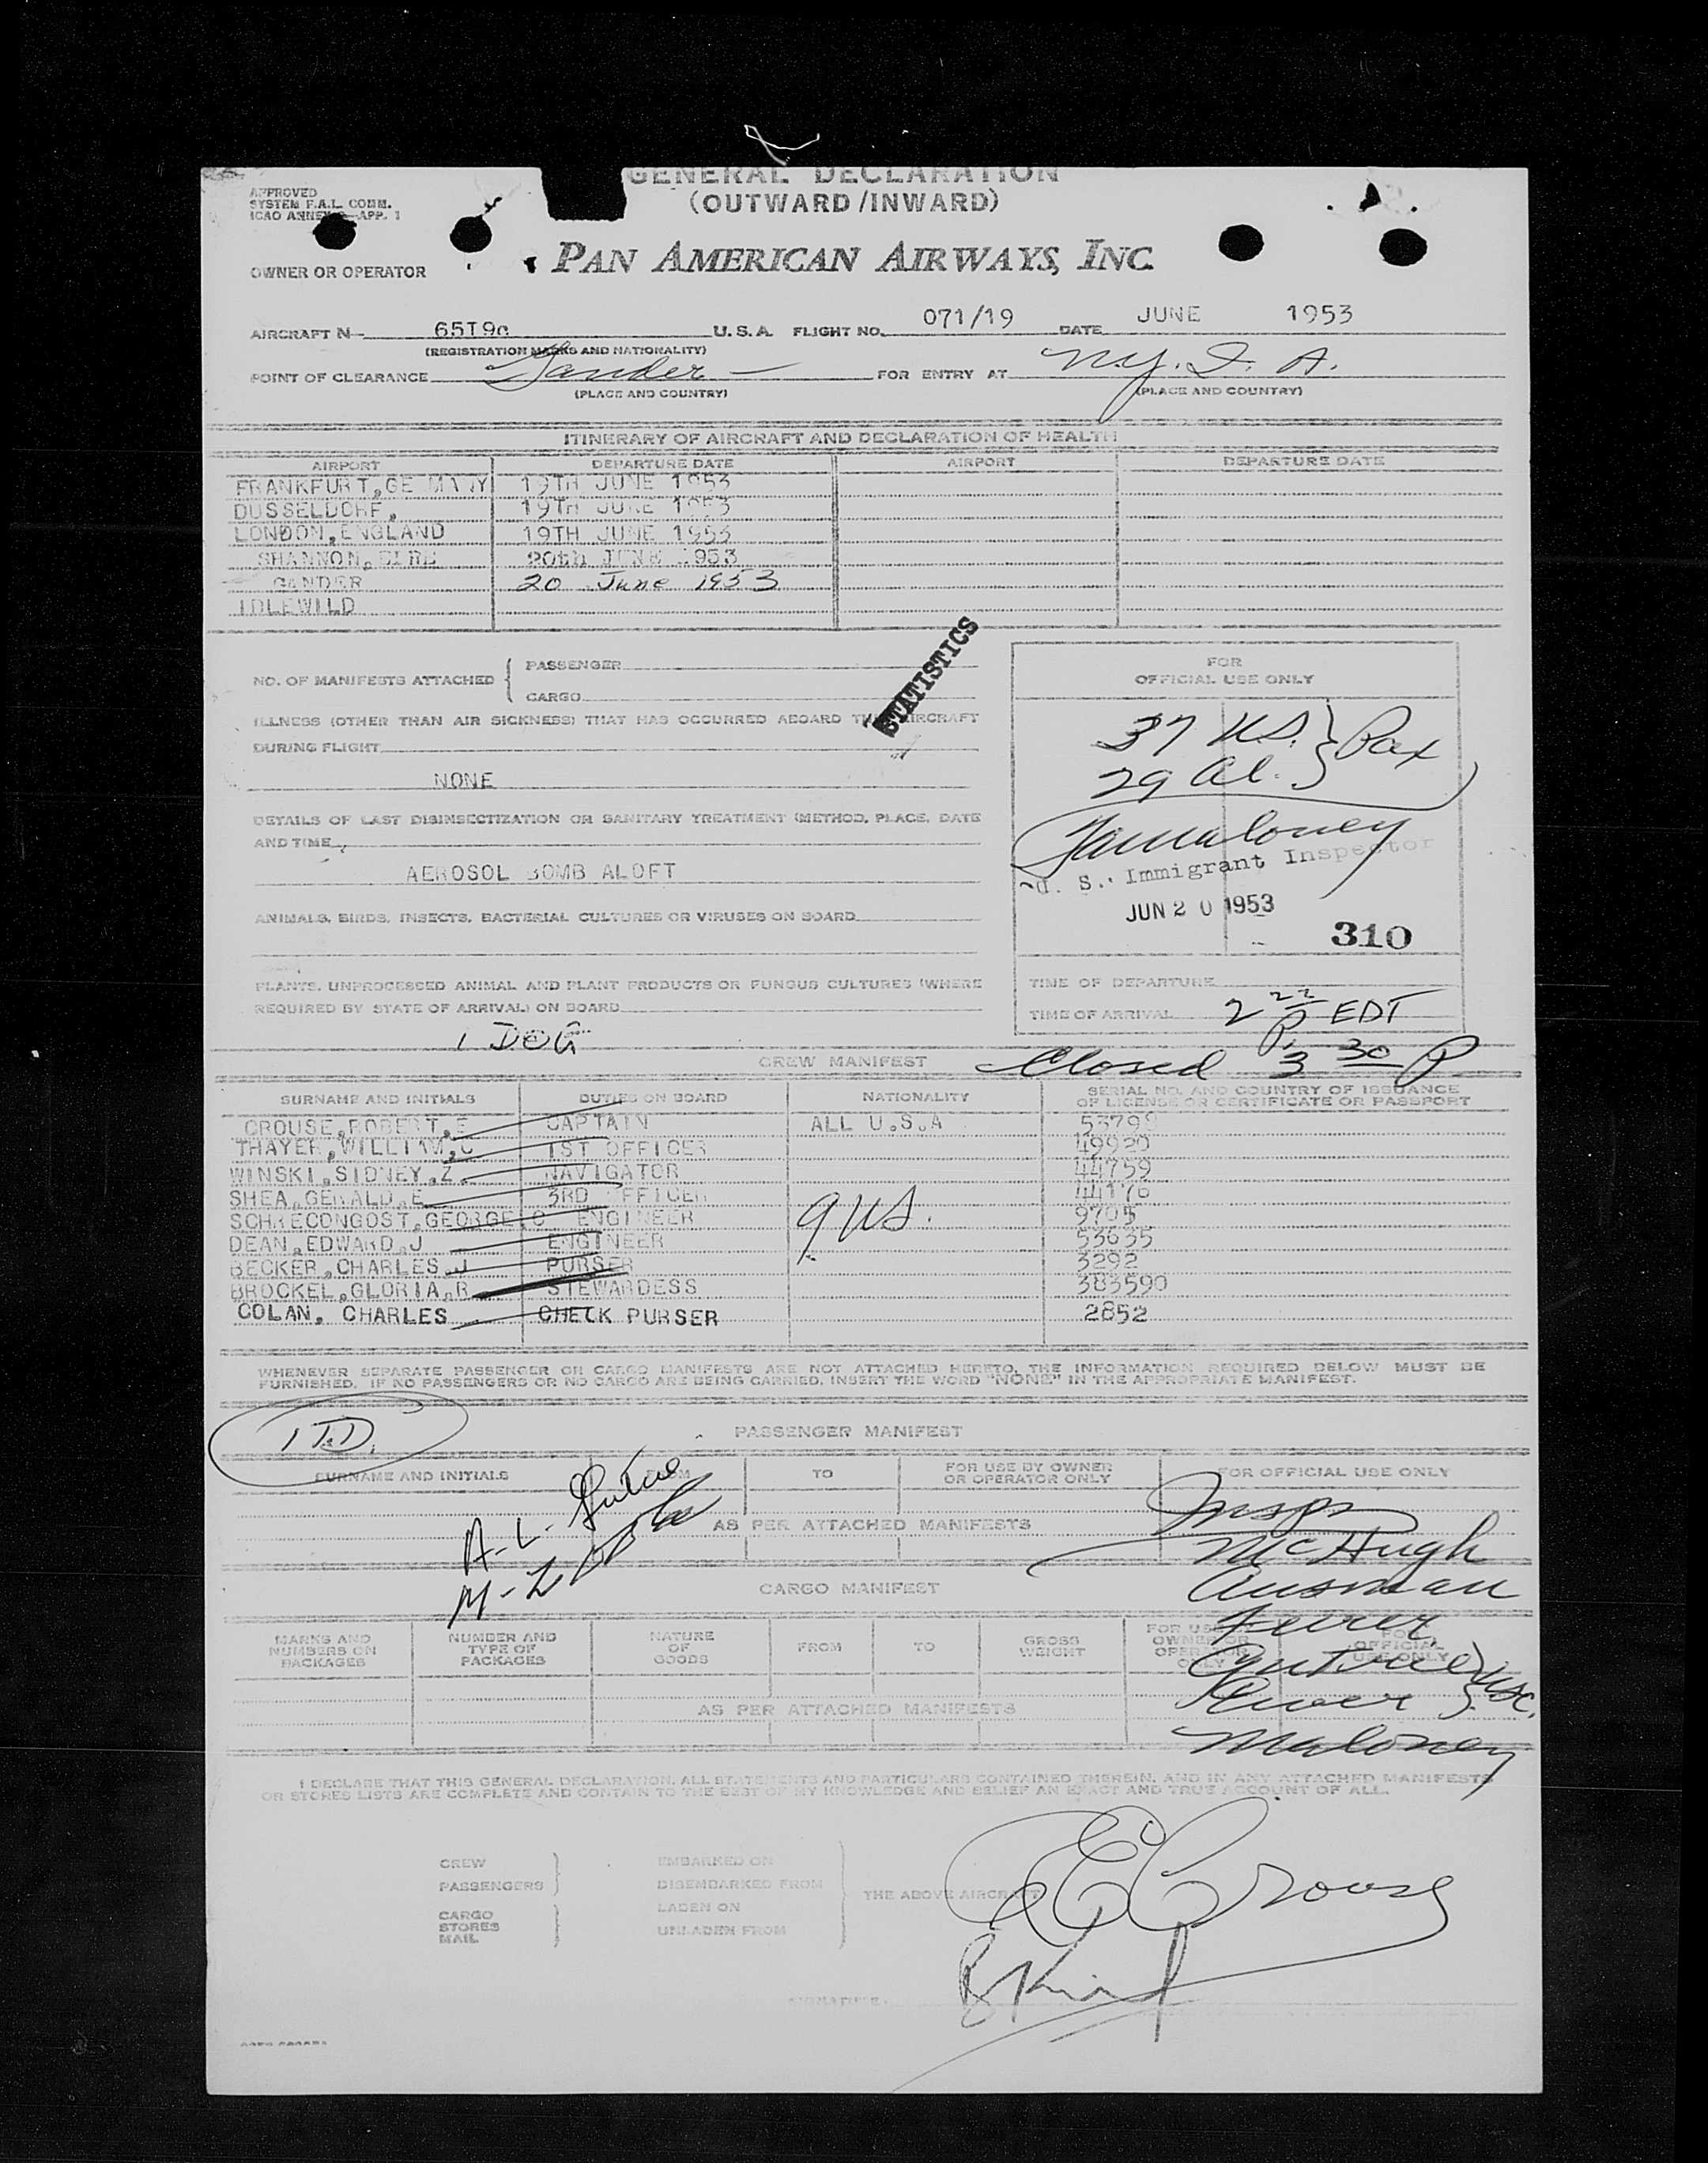 GENERAL DECLARATION
(OUTWARD/INWARD)
APPROVED
SYSTEM F.A.L. COMM.
ICAO ANNEX APP. 1
OWNER OR OPERATOR
PAN AMERICAN AIRWAYS, INC.
AIRCRAFT N U.S.A. FLIGHT NO. 071/19 DATE JUNE 1953
(REGISTRATION MARKS AND NATIONALITY)
POINT OF CLEARANCE Gander FOR ENTRY AT N.Y. I. A.
(PLACE AND COUNTRY) (PLACE AND COUNTRY)
ITINERARY OF AIRCRAFT AND DECLARATION OF HEALTH
AIRPORT DEPARTURE DATE AIRPORT DEPARTURE DATE
FRANKFURT, GE MANY 19TH JUNE 1953
DUSSELDORF, 19TH JUNE 1953
LONDON, ENGLAND 19TH JUNE 1953
SHANNON, EIRE 20th JUNE 1953
GANDER 20 June 1953
IDLEWILD
STATISTICS
NO. OF MANIFESTS ATTACHED { PASSENGER
CARGO
ILLNESS (OTHER THAN AIR SICKNESS) THAT HAS OCCURRED ABOARD THE AIRCRAFT
DURING FLIGHT
NONE
DETAILS OF LAST DISINSECTIZATION OR SANITARY TREATMENT (METHOD, PLACE, DATE
AND TIME
AEROSOL BOMB ALOFT
ANIMALS, BIRDS, INSECTS, BACTERIAL CULTURES OR VIRUSES ON BOARD
PLANTS, UNPROCESSED ANIMAL AND PLANT PRODUCTS OR FUNGUS CULTURES (WHERE
REQUIRED BY STATE OF ARRIVAL) ON BOARD
1 DOG
FOR
OFFICIAL USE ONLY
37 US. } Pax
29 Al.
U. S. Immigrant Inspector
JUN 20 1953
310
TIME OF DEPARTURE
TIME OF ARRIVAL 2 22 P. EDT
Closed 3 30 P
CREW MANIFEST
SURNAME AND INITIALS DUTIES ON BOARD NATIONALITY SERIAL NO. AND COUNTRY OF ISSUANCE
OF LICENSE OR CERTIFICATE OR PASSPORT
CROUSE, ROBERT, E CAPTAIN ALL U.S.A 53799
THAYER, WILLIAM, C 1ST OFFICER 49920
WINSKI, SIDNEY, Z. NAVIGATOR 44759
SHEA, GERALD, E 3RD OFFICER 44176
SCHRECONGOST, GEORGE, C ENGINEER 9 US. 9705
DEAN, EDWARD, J ENGINEER 53635
BECKER, CHARLES, J PURSER 3292
BROCKEL, GLORIA, R STEWARDESS 383590
COLAN, CHARLES CHECK PURSER 2852
WHENEVER SEPARATE PASSENGER OR CARGO MANIFESTS ARE NOT ATTACHED HERETO, THE INFORMATION REQUIRED BELOW MUST BE
FURNISHED. IF NO PASSENGERS OR NO CARGO ARE BEING CARRIED, INSERT THE WORD "NONE" IN THE APPROPRIATE MANIFEST.
PASSENGER MANIFEST
SURNAME AND INITIALS TO FOR USE BY OWNER
OR OPERATOR ONLY FOR OFFICIAL USE ONLY
AS PER ATTACHED MANIFESTS
Insps
McHugh
Ausman
Maloney
CARGO MANIFEST
MARKS AND
NUMBERS ON
PACKAGES
NUMBER AND
TYPE OF
PACKAGES
NATURE
OF
GOODS
FROM TO GROSS
WEIGHT
FOR USE
OWNER OR
OPERATOR
ONLY
FOR
OFFICIAL
USE ONLY
AS PER ATTACHED MANIFESTS
I DECLARE THAT THIS GENERAL DECLARATION, ALL STATEMENTS AND PARTICULARS CONTAINED THEREIN, AND IN ANY ATTACHED MANIFESTS
OR STORES LISTS ARE COMPLETE AND CONTAIN TO THE BEST OF MY KNOWLEDGE AND BELIEF AN EXACT AND TRUE ACCOUNT OF ALL.
CREW
PASSENGERS
CARGO
STORES
MAIL
EMBARKED ON
DISEMBARKED FROM
LADEN ON
UNLADEN FROM
THE ABOVE AIRCRAFT
RECrouse
SIGNATURE